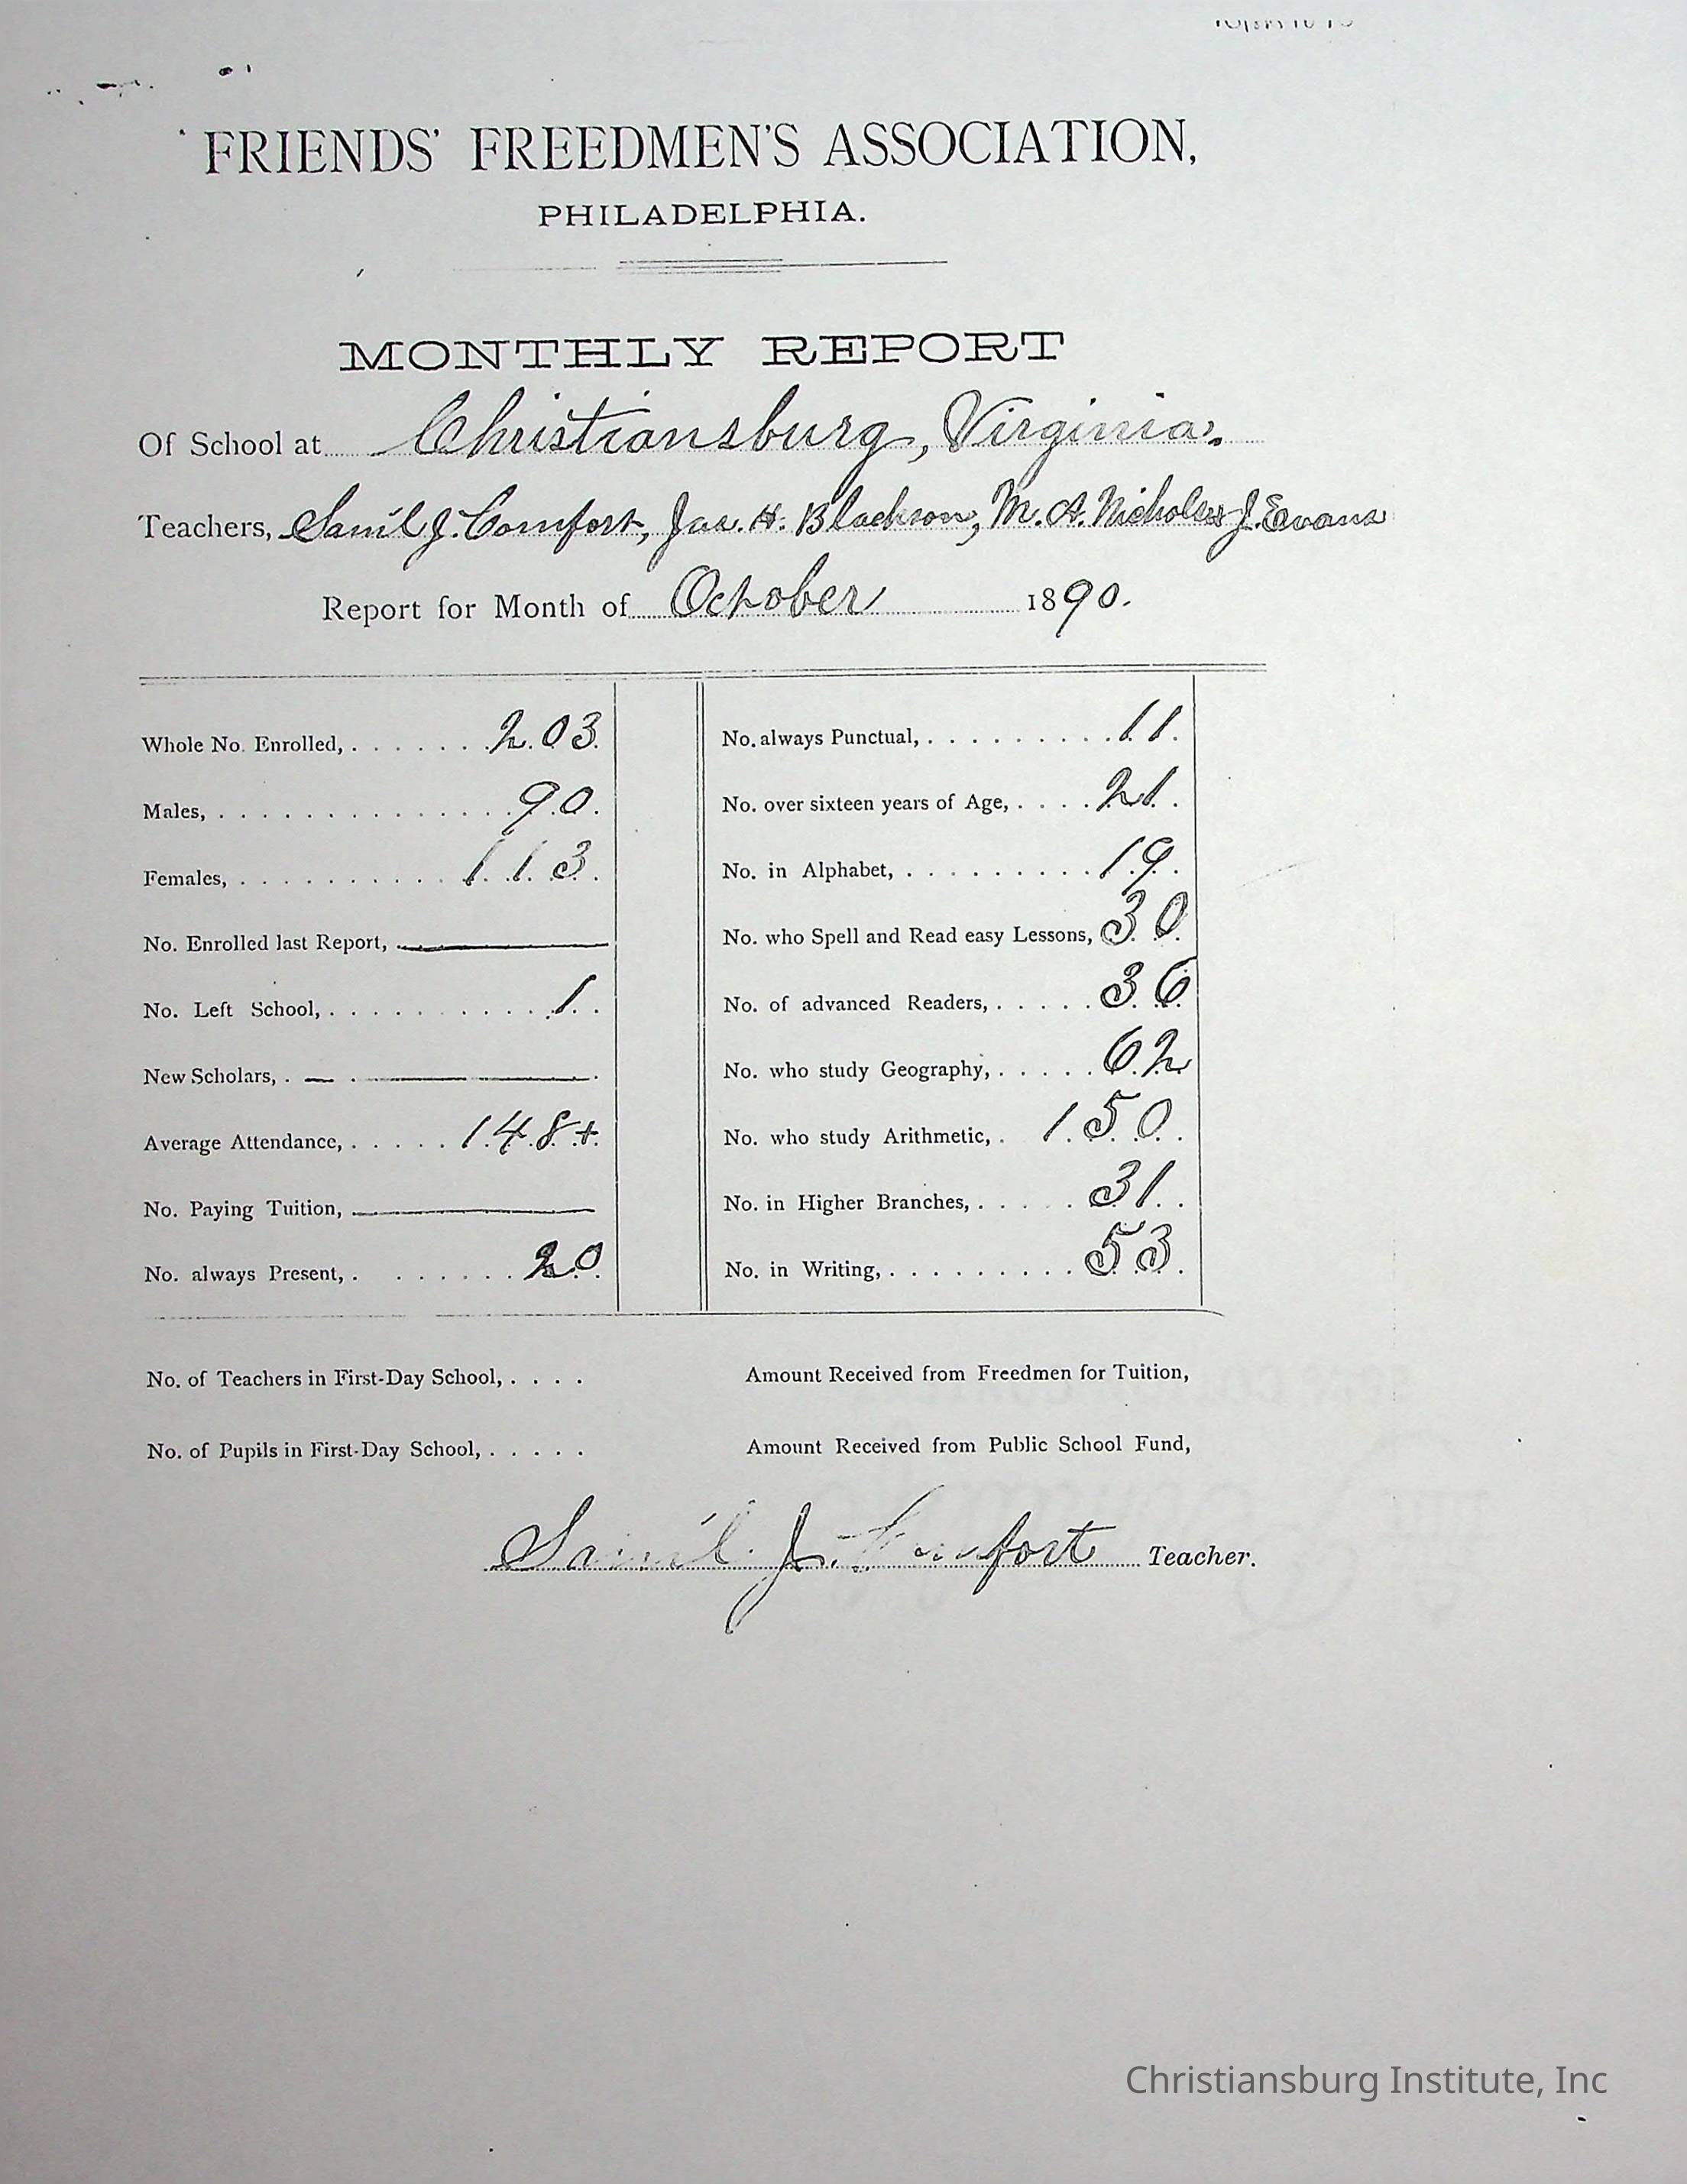 FRIENDS' FREEDMEN'S ASSOCIATION,
PHILADELPHIA.
MONTHLY REPORT
Of School at Christiansburg, Virginia.
Teachers, Sam'l J. Comfort, Jas. H. Blackson, M. A. Nicholas J. Evans
Report for Month of October 1890.
Whole No. Enrolled, 203
Males, 90
Females, 113
No. Enrolled last Report,
No. Left School, 1
New Scholars,
Average Attendance, 148+
No. Paying Tuition,
No. always Present, 20
No. always Punctual, 11
No. over sixteen years of Age, 21
No. in Alphabet, 19
No. who Spell and Read easy Lessons, 30
No. of advanced Readers, 36
No. who study Geography, 62
No. who study Arithmetic, 150
No. in Higher Branches, 31
No. in Writing, 53
No. of Teachers in First-Day School,
No. of Pupils in First-Day School,
Amount Received from Freedmen for Tuition,
Amount Received from Public School Fund,
Sam'l. J. Comfort Teacher.
Christiansburg Institute, Inc